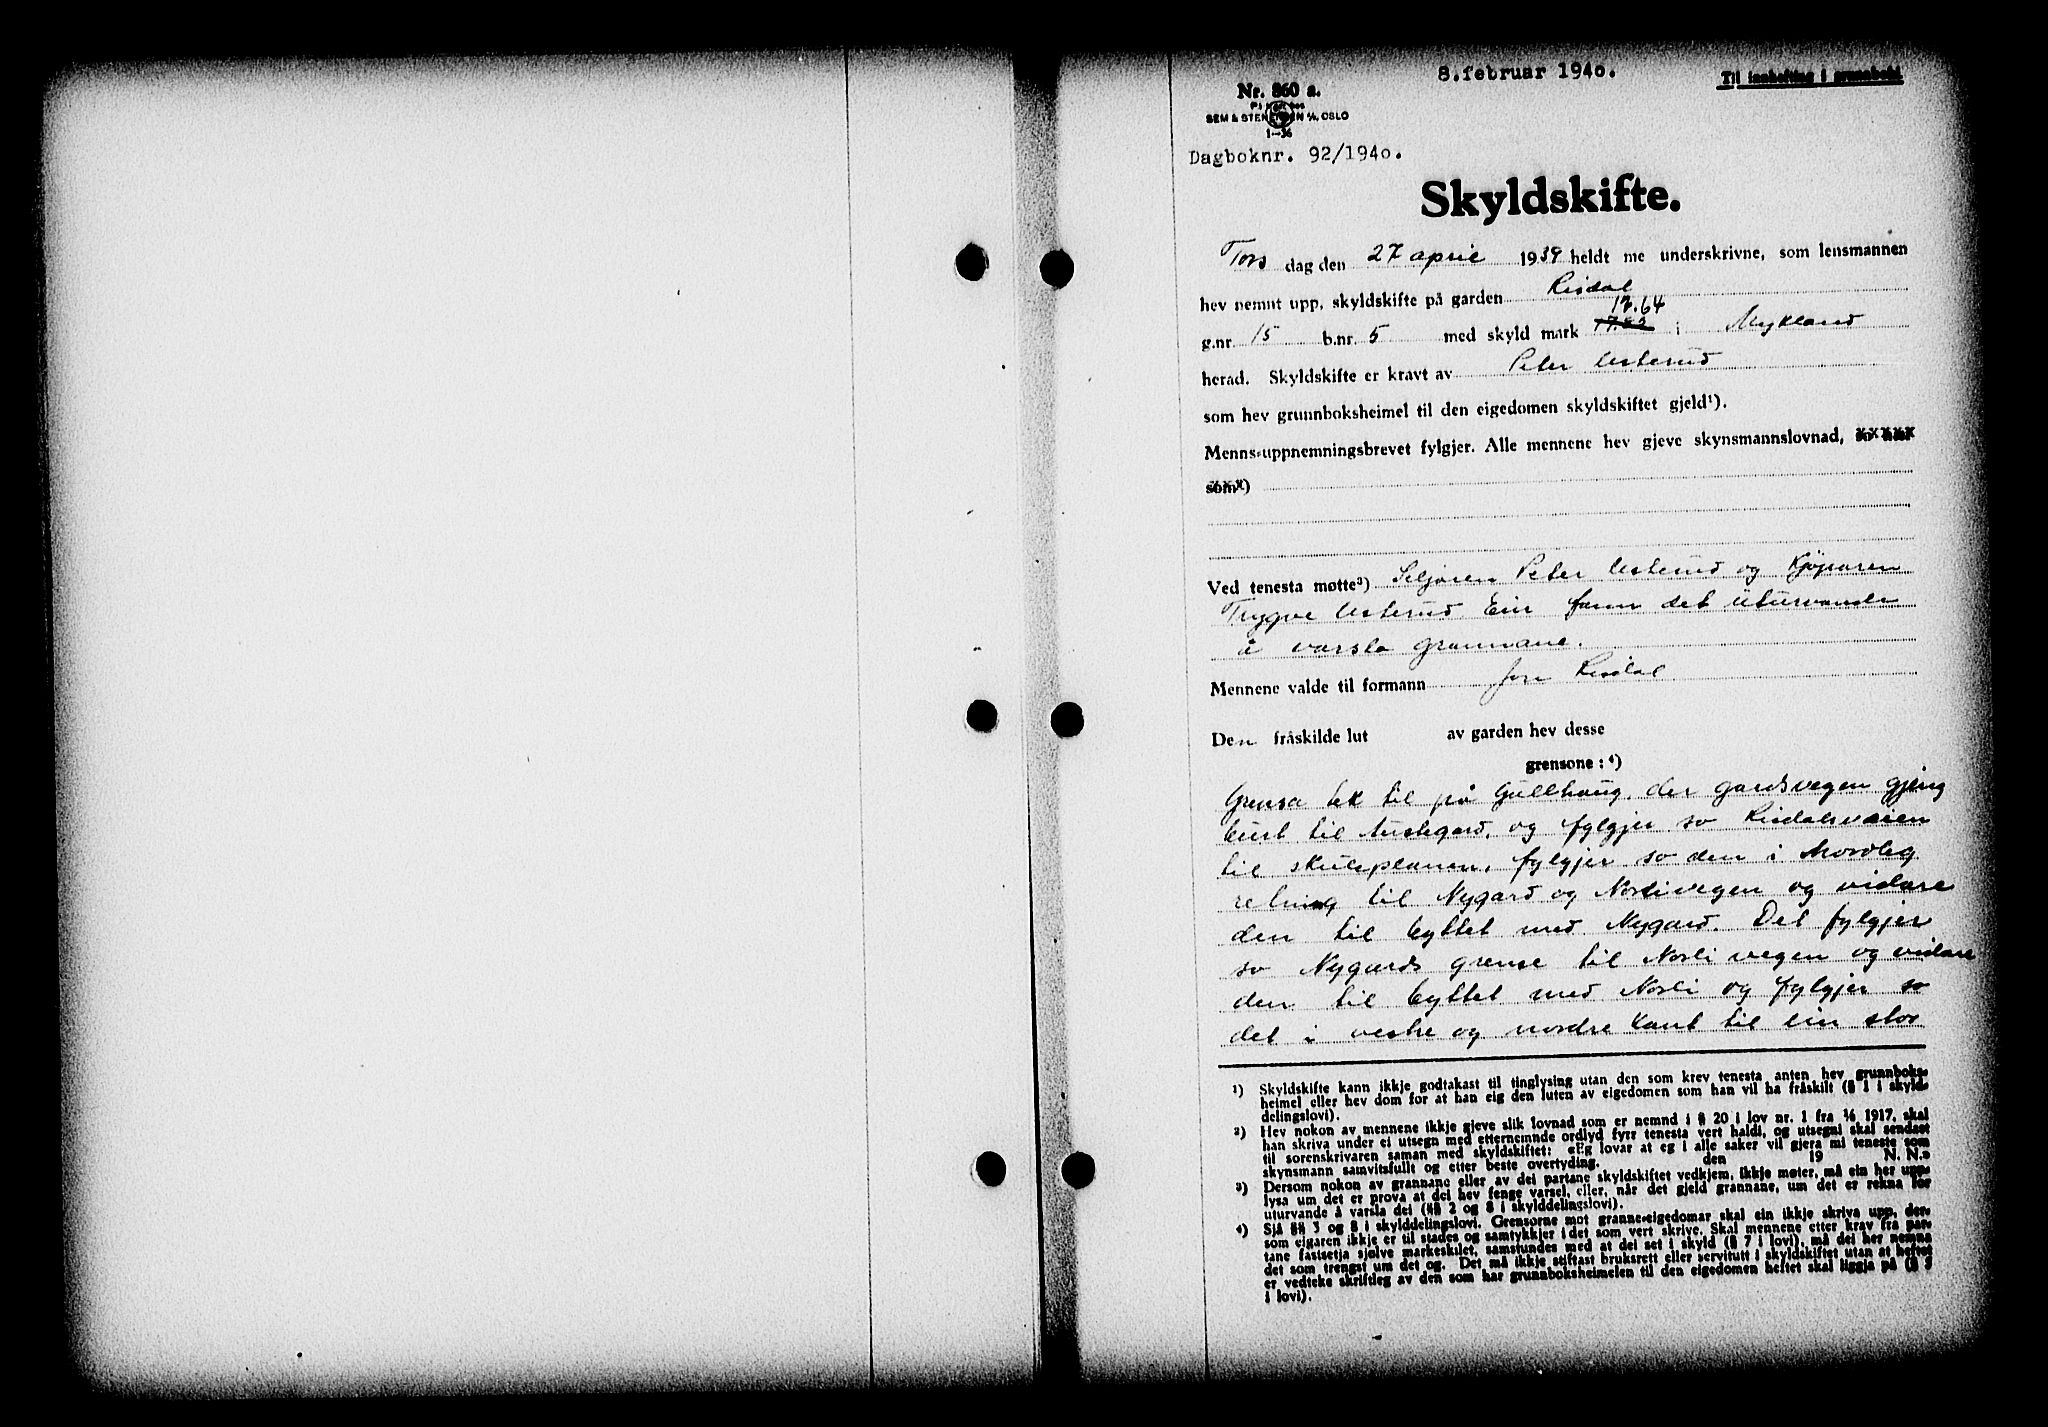 8.februar 1940.
Til innhefting i grunnboki
Nr. 860 a.
SEM & STENERSEN A/S, OSLO
1-36
Dagboknr. 92/1940.
Skyldskifte.
Tors dag den 27 april 1939 heldt me underskrivne, som lensmannen
hev nemnt upp, skyldskifte på garden Risdal
12.64
g.nr. 15 b.nr. 5 med skyld mark i Mykland
herad. Skyldskifte er kravt av Peter Usterud
som hev grunnboksheimel til den eigedomen skyldskiftet gjeld¹).
Menns-uppnemningsbrevet fylgjer. Alle mennene hev gjeve skynsmannslovnad,
som²)
Ved tenesta møtte³) Seljaren Peter Usterud og Kjöparen
Trygve Usterud Ein fann det uturvande
å varsla grannane.
Mennene valde til formann Jon Risdal
Den fråskilde lut av garden hev desse
grensone: ⁴)
Grensa tek til på Gullhaug, der gardsvegen gjeng
burt til Austegard, og fylgjer so Risdalsvæien
til skuleplanen, fylgjer so den i Nordleg
retning til Nygard og Norlivegen og vidare
den til byttet med Nygard. Det fylgjer
so Nygards grense til Norli vegen og vidare
den til byttet med Norli og fylgjer so
det i vestre og nordre kant til ein stor
¹) Skyldskifte kann ikkje godtakast til tinglysing utan den som krev tenesta anten hev grunnboks-
heimel eller hev dom for at han eig den luten av eigedomen som han vil ha fråskilt (§ 1 i skyld-
delingslovi).
²) Hev nokon av mennene ikkje gjeve slik lovnad som er nemnd i § 20 i lov nr. 1 fra 1917, skal
han skriva under ei utsegn med etternemnde ordlyd fyrr tenesta vert haldi, og utsegni skal sendast
til sorenskrivaren saman med skyldskiftet: «Eg lovar at eg i alle saker vil gjera mi teneste som
skynsmann samvitsfullt og etter beste overtyding. den 19 N. N.»
³) Dersom nokon av grannane eller av dei partane skyldskiftet vedkjem, ikkje møter, må ein her upp-
lysa um det er prova at dei hev fenge varsel, eller, når det gjeld grannane, um det er rekna for
uturvande å varsla dei (§§ 2 og 8 i skylddelingslovi).
⁴) Sjå §§ 3 og 8 i skylddelingslovi. Grensorne mot granne-eigedomar skal ein ikkje skriva upp, der-
som eigaren ikkje er til stades og samtykkjer i det som vert skrive. Skal mennene etter krav fra par-
tane fastsetja sjølve markeskilet, samstundes med at dei set i skyld (§ 7 i lovi), må dei her nemna
det som trengst um det og. Det må ikkje stiftast bruksrett eller servitutt i skyldskiftet utan at heftet
er vedteke skriftleg av den som har grunnboksheimelen til den eigedomen heftet skal liggja på (§ 3
i lovi).